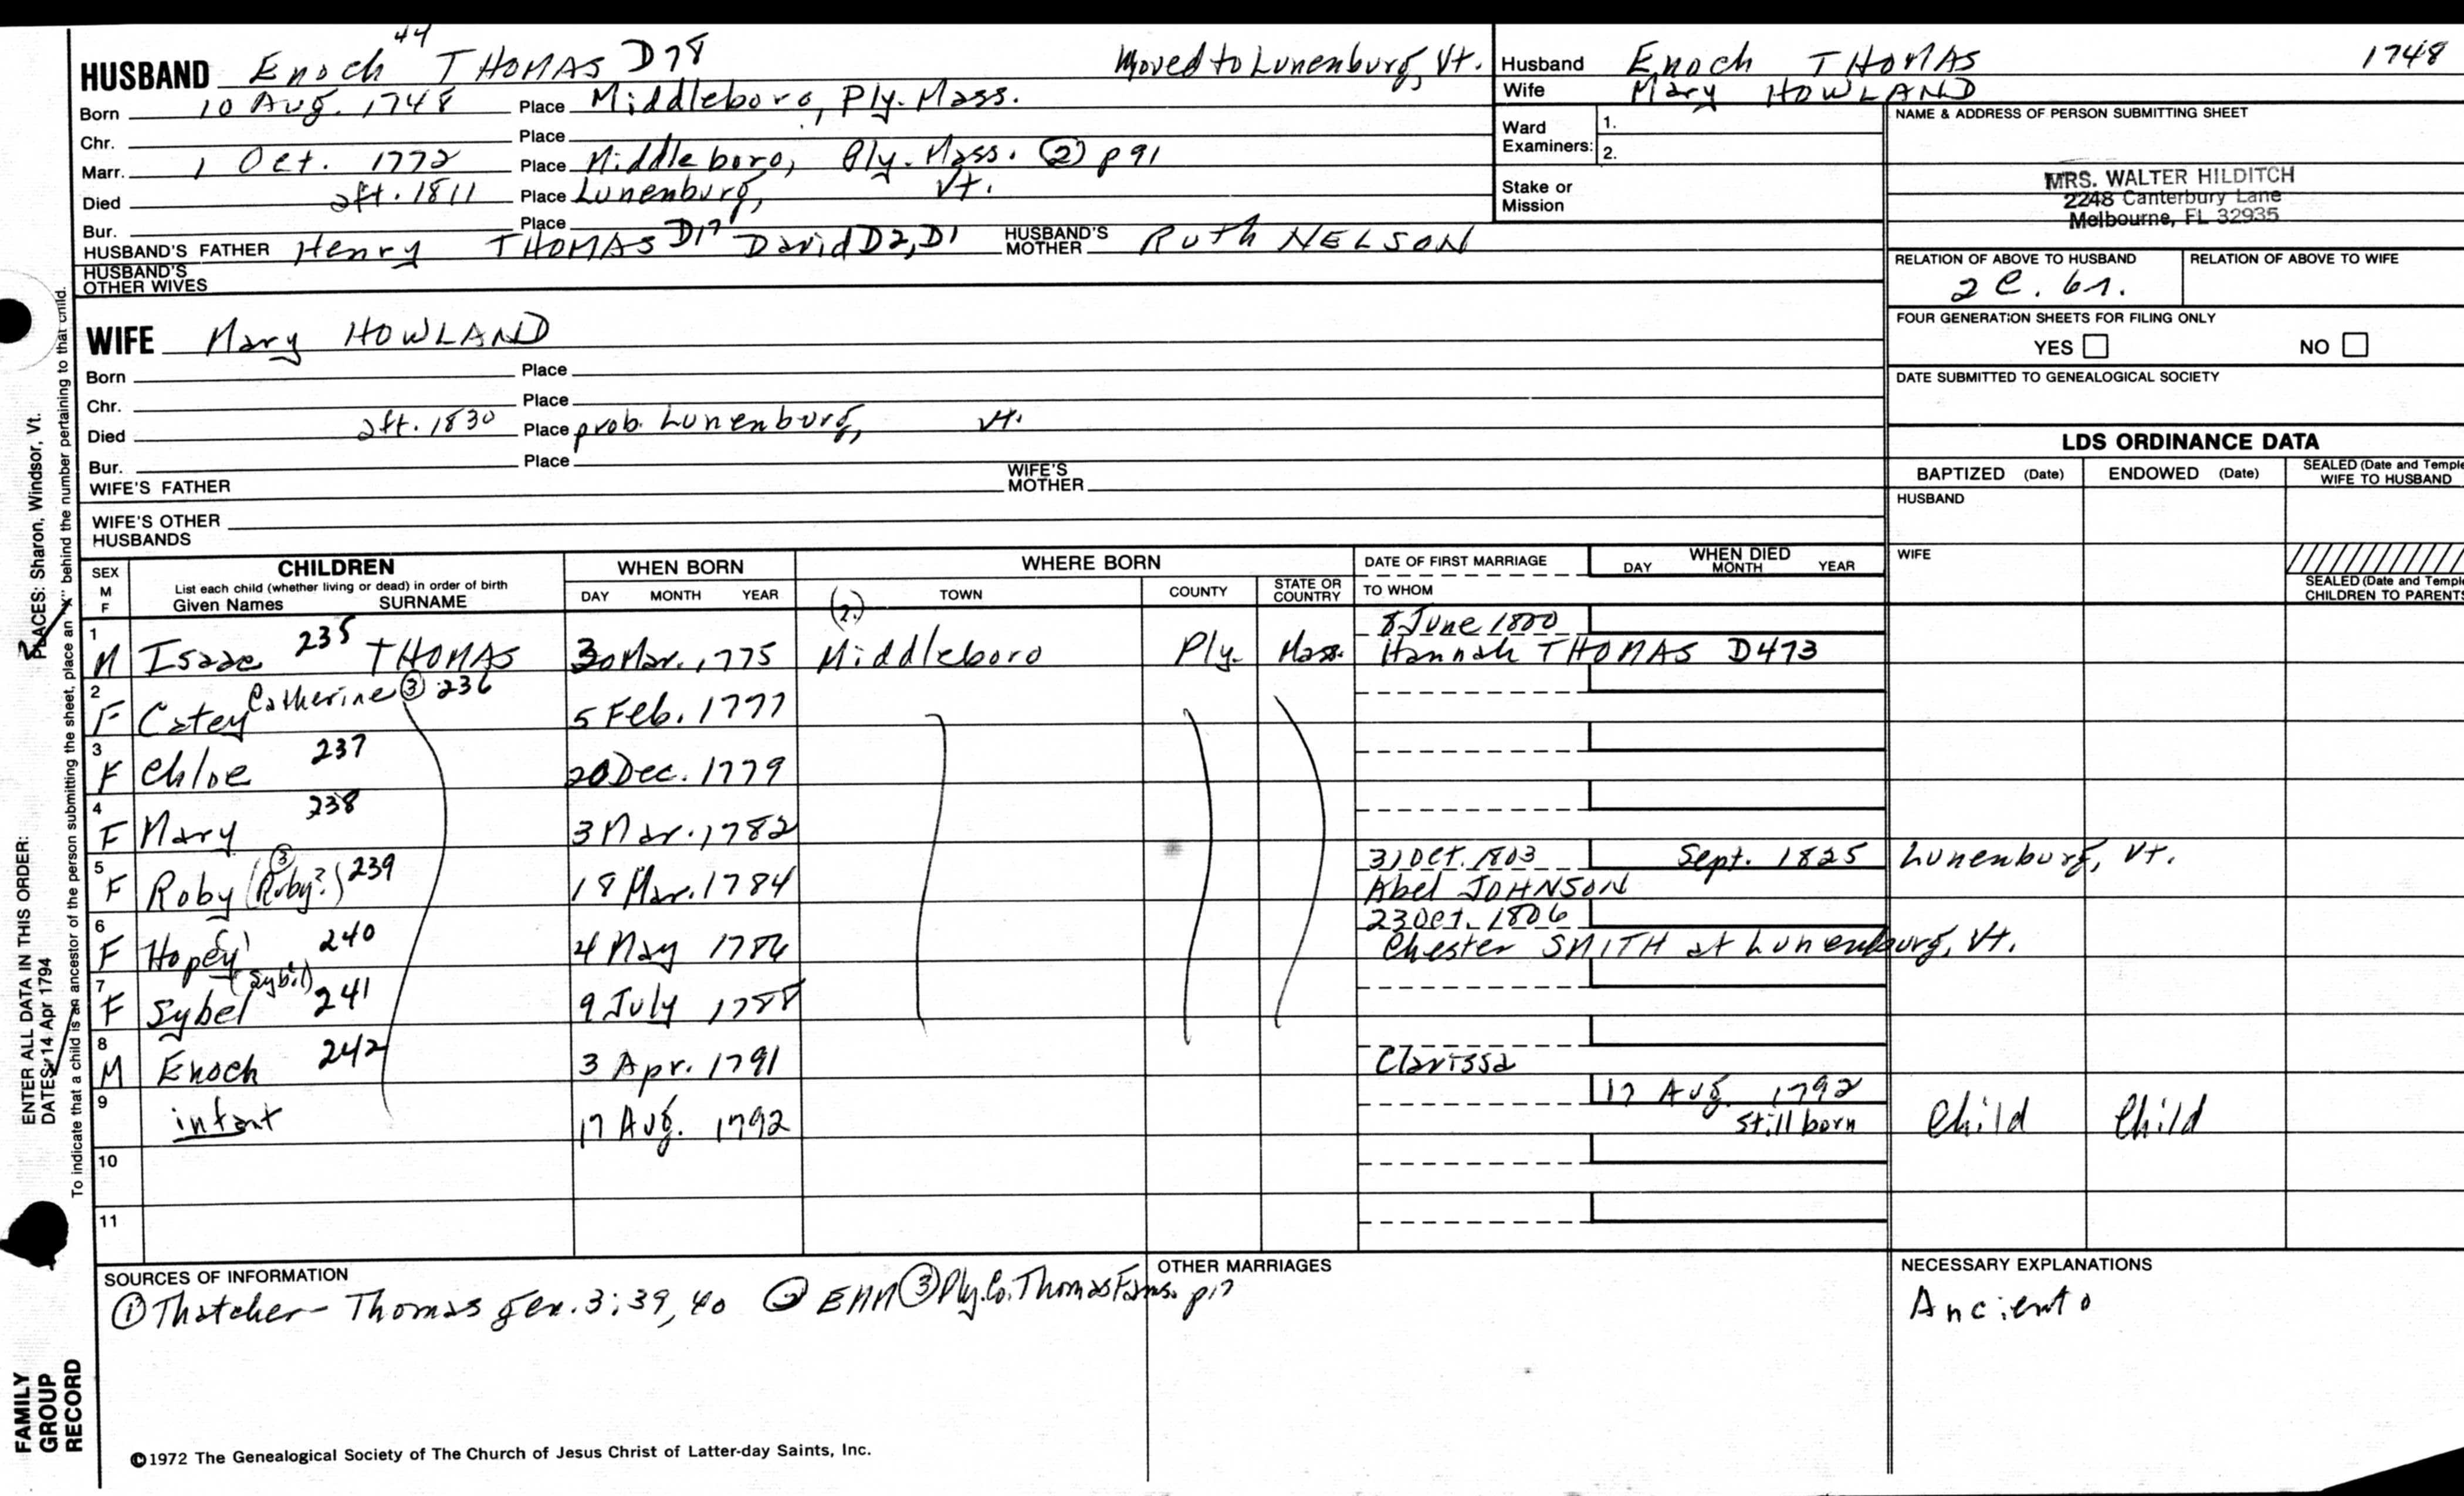 HUSBAND Enoch 44 THOMAS D78 Moved to Lunenburg, Vt.
Born 10 Aug. 1748 Place Middleboro, Ply. Mass.
Chr. Place
Marr. 1 Oct. 1772 Place Middleboro, Ply. Mass. (2) p 91
Died aft. 1811 Place Lunenburg, Vt.
Bur. Place
HUSBAND'S FATHER Henry THOMAS D17 David D2, D1 HUSBAND'S MOTHER Ruth NELSON
HUSBAND'S OTHER WIVES
Husband Enoch THOMAS 1748
Wife Mary HOWLAND
Ward Examiners: 1.
2.
Stake or Mission
NAME & ADDRESS OF PERSON SUBMITTING SHEET
MRS. WALTER HILDITCH
2248 Canterbury Lane
Melbourne, FL 32935
RELATION OF ABOVE TO HUSBAND RELATION OF ABOVE TO WIFE
2 C. 6r.
FOUR GENERATION SHEETS FOR FILING ONLY
YES NO
DATE SUBMITTED TO GENEALOGICAL SOCIETY
WIFE Mary HOWLAND
Born Place
Chr. Place
Died aft. 1830 Place prob. Lunenburg, Vt.
Bur. Place
WIFE'S FATHER WIFE'S MOTHER
WIFE'S OTHER HUSBANDS
LDS ORDINANCE DATA
BAPTIZED (Date) ENDOWED (Date) SEALED (Date and Temple WIFE TO HUSBAND
HUSBAND
WIFE
SEALED (Date and Temple CHILDREN TO PARENTS
SEX M F CHILDREN List each child (whether living or dead) in order of birth Given Names SURNAME WHEN BORN DAY MONTH YEAR WHERE BORN (2.) TOWN COUNTY STATE OR COUNTRY DATE OF FIRST MARRIAGE TO WHOM WHEN DIED DAY MONTH YEAR
1 M Isaac 235 THOMAS 30 Mar. 1775 Middleboro Ply. Mass. 8 June 1800 Hannah THOMAS D473
2 F Catey Catherine (3) 236 5 Feb. 1777
3 F Chloe 237 20 Dec. 1779
4 F Mary 238 3 Mar. 1782
5 F Roby (Ruby?) (3) 239 18 Mar. 1784 31 Oct. 1803 Abel JOHNSON Sept. 1825 Lunenburg, Vt.
6 F Hopey 240 4 May 1786 23 Oct. 1806 Chester SMITH at Lunenburg, Vt.
7 F Sybel (Sybil) 241 9 July 1788
8 M Enoch 242 3 Apr. 1791 Clarissa
9 infant 17 Aug. 1792 17 Aug. 1792 Stillborn Child Child
10
11
SOURCES OF INFORMATION
(1) Thatcher - Thomas gen. 3:39, 40 (2) EMM (3) Ply. Co. Thomas Fams. p17
OTHER MARRIAGES
NECESSARY EXPLANATIONS
Ancient o
©1972 The Genealogical Society of The Church of Jesus Christ of Latter-day Saints, Inc.
FAMILY GROUP RECORD
ENTER ALL DATA IN THIS ORDER:
DATES: 14 Apr 1794
PLACES: Sharon, Windsor, Vt.
To indicate that a child is an ancestor of the person submitting the sheet, place an "X" behind the number pertaining to that child.